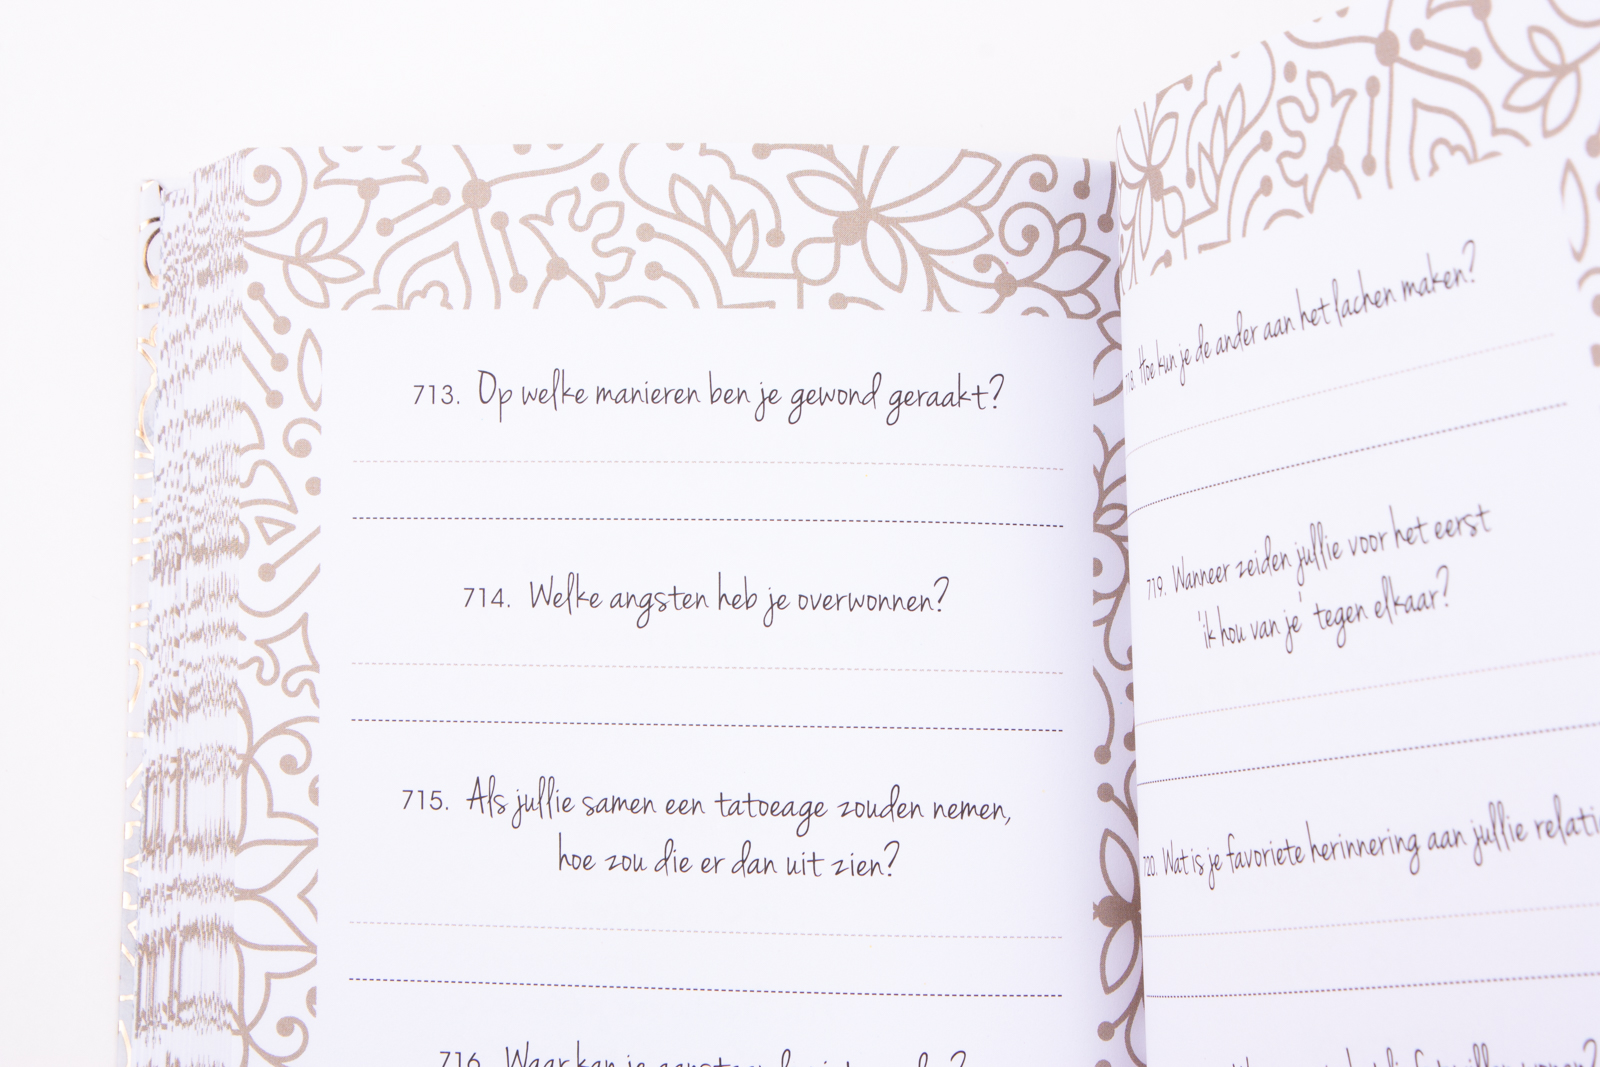 713. Op welke manieren ben je gewond geraakt?
714. Welke angsten heb je overwonnen?
715. Als jullie samen een tatoeage zouden nemen,
hoe zou die er dan uit zien?
716. Waar kan je
718. Hoe kun je de ander aan het lachen maken?
719. Wanneer zeiden jullie voor het eerst
'ik hou van je' tegen elkaar?
720. Wat is je favoriete herinnering aan jullie relati